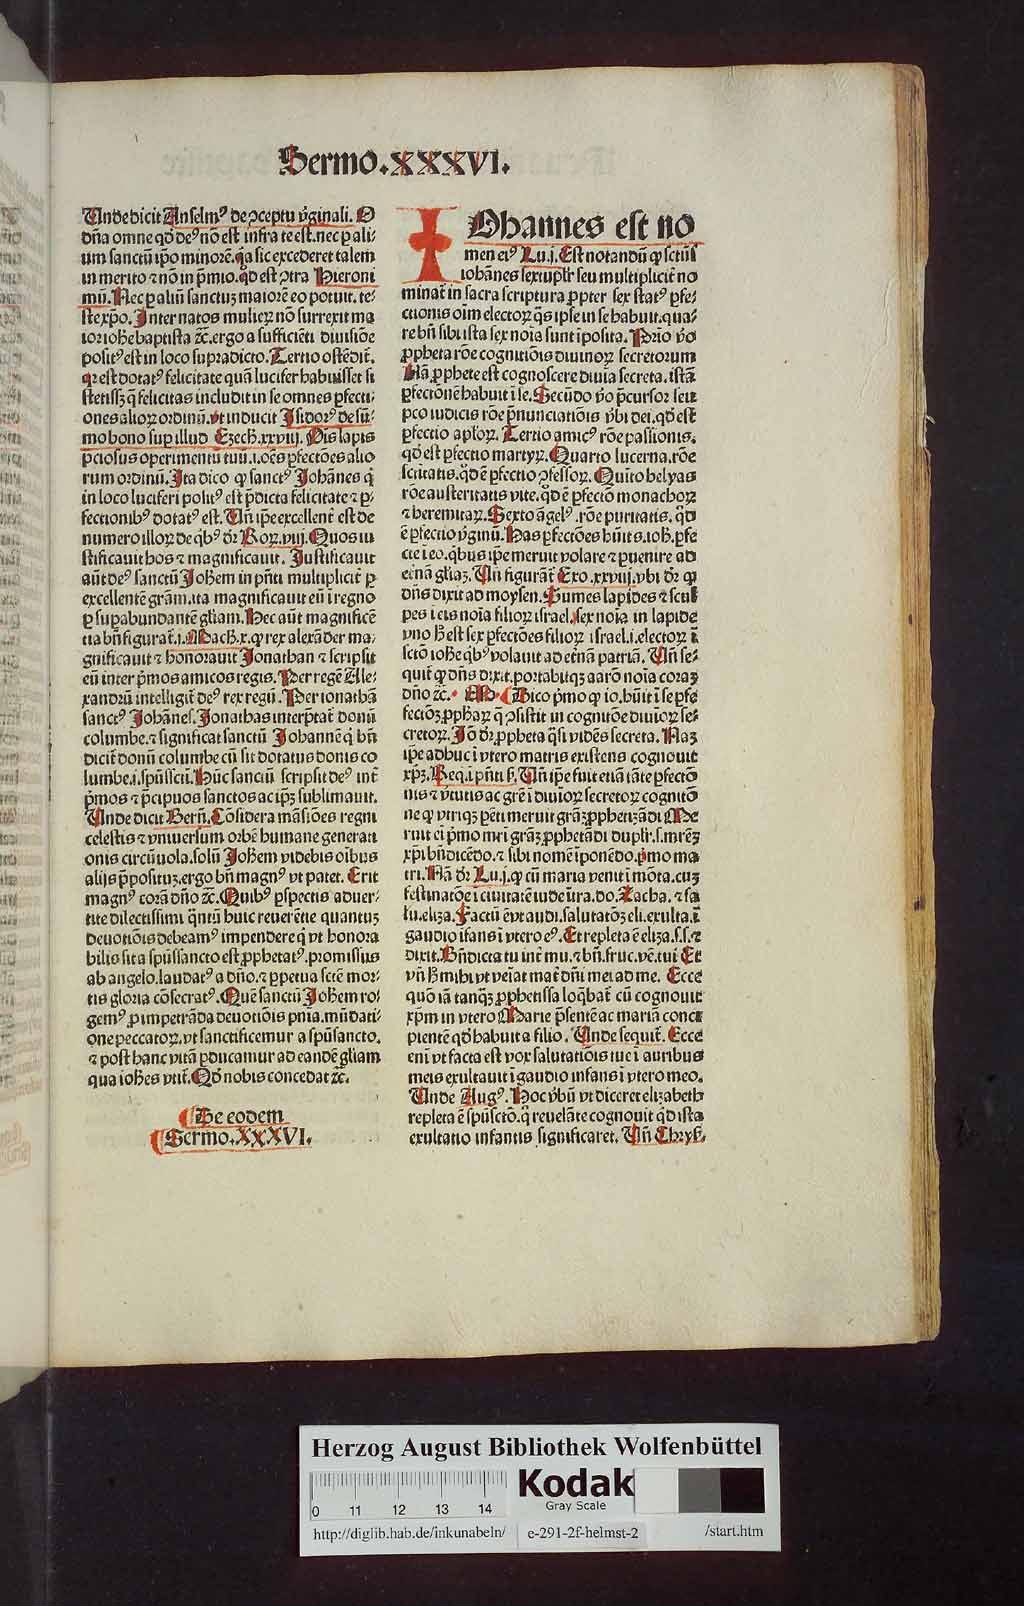 Sermo.XXXVI.
Unde dicit Anselmꝰ de ↄceptu v̓ginali. O
dn̄a omne qd̓ deꝰ nō est infra te est. nec p ali⸗
um sanctū ip̄o minorē. q̄a sic excederet talem
in merito ⁊ nō in p̄mio. qd̓ est ↄtra Hieroni
mū. Nec p aliū sanctuꝫ maiorē eo potuit. te⸗
ste xp̄o. Inter natos mulieꝝ nō surrexit ma
ior ioh̓e baptista ⁊c̄. ergo a sufficiēti diuisiōe
positꝰ est in loco supradicto. Tertio ostēdit̄.
qꝛ est dotatꝰ felicitate quā lucifer habuisset si
stetissꝫ q̄ felicitas includit in se omnes pfecti⸗
ones alioꝝ ordinū. vt inducit Isidorꝰ de sū⸗
mo bono sup illud Ezech. xxviij. Oīs lapis
p̄ciosus operimentū tuū. i. oēs pfectōes alio
rum ordinū. Ita dico ꝙ sanctꝰ Johānes q̄
in loco luciferi positꝰ est p̄dicta felicitate ⁊ p⸗
fectionibꝰ dotatꝰ est. Un̄ ip̄e excellent̄ est de
numero illoꝝ de qb̓ꝰ dr̄ Ro. viij. Quos iu
stificauit hos ⁊ magnificauit. Justificauit
aūt deꝰ sanctū Joh̓em in p̄nti multiplicit̄ p
excellentē grām. ita magnificauit eū ī regno
p supabundantē gl̓iam. Hec aūt magnificē
tia bn̄ figurat̄. j. Mach. x. ꝙ rex alexāder ma⸗
gnificauit ⁊ honorauit Jonathan ⁊ scripsit
eū inter p̄mos amicos regis. Per regē Ale⸗
xandrū intelligit̄ deꝰ rex regū. Per ionathā
sanctꝰ Johānes. Jonathas interp̄tat̄ donū
columbe. ⁊ significat sanctū Johannē q̄ bn̄
dicit̄ donū columbe cū sit dotatus donis co
lumbe. i. spūssc̄ti. Hūc sanctū scripsit deꝰ int̄
p̄mos ⁊ p̄cipuos sanctos ac ip̄ꝫ sublimauit.
Unde dicit Bern̄. Cōsidera māsiōes regni
celestis ⁊ vniuersum orbē humane generati
onis circūuola. solū Joh̓em videbis oībus
alijs p̄positū. ergo bn̄ magnꝰ vt patet. Erit
magnꝰ corā dn̄o ⁊c̄. Quibꝰ pspectis aduer⸗
tite dilectissimi q̄ntū huic reuerētie quantuꝫ
deuotiōis debeamꝰ impendere q̄ vt honora
bilis sit a spūssancto est ꝓphetatꝰ. promissus
ab angelo. laudatꝰ a dn̄o. ⁊ ppetua sctē mor⸗
tis gloria cōsecratꝰ. Quē sanctū Joh̓em ro⸗
gemꝰ ꝓ impetrāda deuotiōis pn̄ia. mūdati⸗
one peccatoꝝ. vt sanctificemur a spūsancto.
⁊ post hanc vitā pducamur ad eandē gl̓iam
qua ioh̓es vtit̄. Qd̓ nobis concedat ⁊c̄.
De eodem
Sermo. XXXVI.
IOhannes est no
men eiꝰ Lu. j. Est notandū ꝙ sctūs
iohānes sextuplr̄ seu multiplicit̄ no
minat̄ in sacra scriptura ꝓpter sex statꝰ pfe⸗
ctionis oīm electoꝝ q̄s ipse in se habuit. qua⸗
re bn̄ sibi ista sex noīa sunt īposita. Prīo v̓o
ꝓpheta rōe cognitiōis diuinoꝝ secretorum
Nā ꝓphete est cognoscere diuīa secreta. istā
pfectionē habuit ī se. Secūdo v̓o p̄cursor seu
p̄co iudicis rōe p̄nunciatiōis v̓bi dei. qd̓ est
pfectio apl̓oꝝ. Tertio amicꝰ rōe passiōnis.
qd̓ est pfectio martyꝝ. Quarto lucerna. rōe
sctitatis. qd̓ ē pfectio ↄfessoꝝ. Quīto helyas
rōe austeritatis vite. qd̓ ē pfectio monachoꝝ
⁊ heremitaꝝ. Sexto āgelꝰ. rōe puritatis. qd̓
ē pfectio v̓ginū. Has pfectōes hūit s. ioh. pfe
cte ī eo. qbus ip̄e meruit volare ⁊ puenire ad
etnā gl̓iaꝫ. Un̄ figurat̄ Exo. xxviij. vbi dr̄ ꝙ
dn̄s dixit ad moysen. Sumes lapides ⁊ sculp
pes ī eis noīa filioꝝ israel. sex noīa in lapide
vno h̓ est sex pfectōes filioꝝ israel. i. electoꝝ ī
sctō ioh̓e qb̓ꝰ volauit ad etnā patriā. Un̄ se⸗
quit̄ ꝙ dn̄s dixit. portabitqꝫ aarō noīa coraꝫ
dn̄o ⁊c̄. Dico p̄mo ꝙ io. hūit ī se pfe
fectiōꝫ ꝓphaꝝ q̄ ↄsistit in cognitiōe diuīoꝝ se⸗
cretoꝝ. Jō dr̄ ꝓpheta q̄si vidēs secreta. Naꝫ
ip̄e adhuc ī vtero matris existens cognouit
xp̄ꝫ. Req. i p̄nti s̄. Un̄ ip̄e fuit etiā tāte pfectō
nis ⁊ v̓tutis ac grē ī diuīoꝝ secretoꝝ cognitō
ne ꝙ vtriqꝫ pēti meruit grāꝫ ꝓphetizādi Me
ruit ei p̄mo mr̄i grāꝫ ꝓphetādi duplr̄. s. mrēꝫ
xp̄i bn̄dicēdo. ⁊ sibi nomē īponēdo. p̄mo ma
tri. Nā dr̄ Lu. j. ꝙ cū maria venit ī mōta. cuꝫ
festinatōe ī ciuitatē iude ūra. do. Zacha. ⁊ sa
lu. eliza. Factū ē vt audi. salutatōꝫ eli. exulta. ī
gaudio īfans ī vtero eꝰ. Et repleta ē eliza. s. s. ⁊
dixit. Bn̄dicta tu int̄ mu. ⁊ bn̄. fruc. vē. tui Et
vn̄ h̓ mihi vt veīat mat̄ dn̄i mei ad me. Ecce
quō iā tanqꝫ ꝓphetissa loqb̓at̄ cū cognouit
xp̄m in vtero Marie p̄sentē ac mariā conci
pientē qd̓ habuit a filio. Unde sequit̄. Ecce
eni vt facta est vox salutatiōis tue ī auribus
meis exultauit ī gaudio infans ī vtero meo.
Unde Augꝰ. Hoc v̓bū vt diceret elizabeth
repleta ē spūsctō. q̄ reuelāte cognouit qd̓ ista
exultatio infantis significaret. Un̄ Chrys.
Herzog August Bibliothek Wolfenbüttel
Kodak
Gray Scale
0 11 12 13 14
http://diglib.hab.de/inkunabeln/ e-291-2f-helmst-2 /start.htm